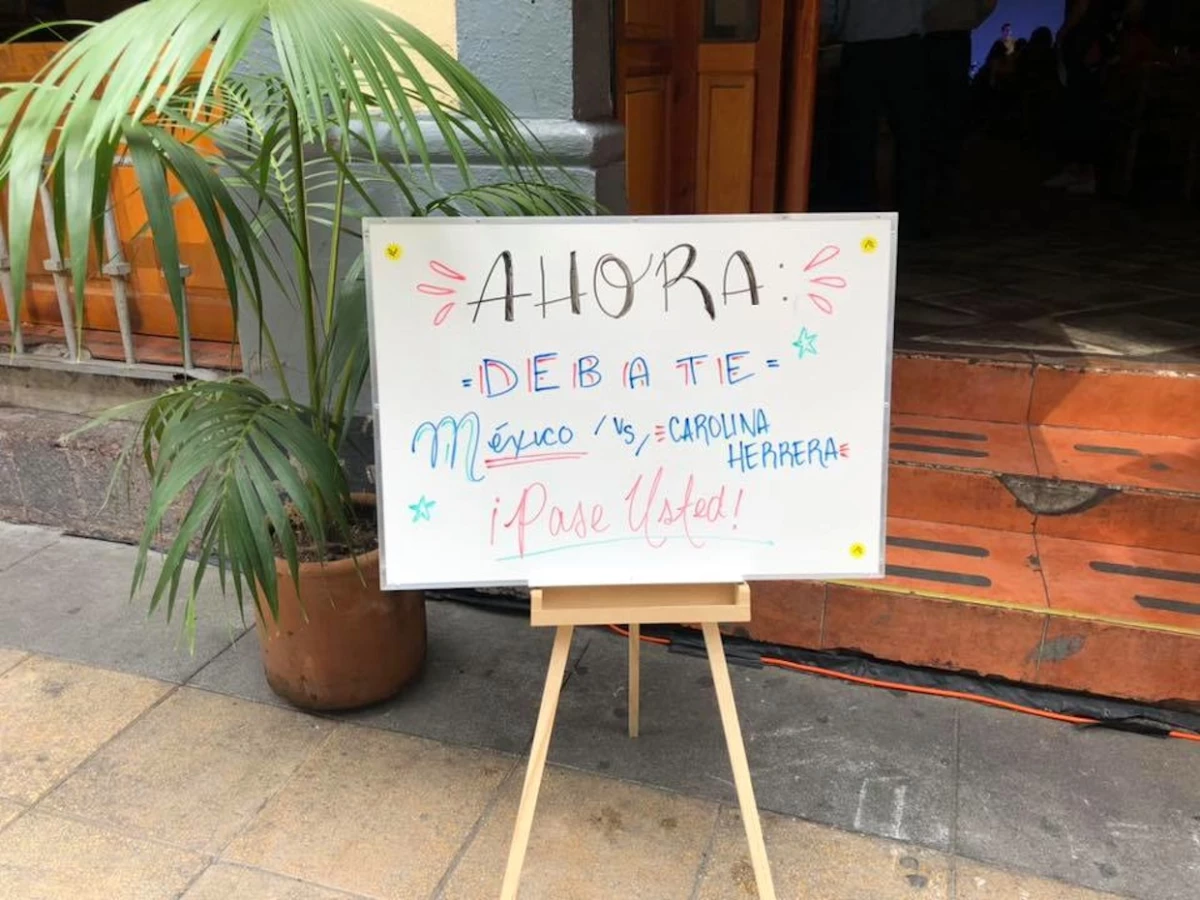 AHORA:
=DEBATE=
México /vs/ CAROLINA
HERRERA
¡Pase Usted!